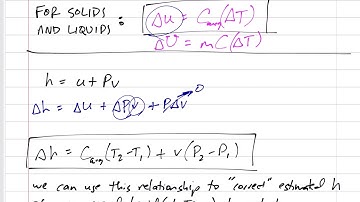 FOR SOLIDS
AND LIQUIDS : Δu = Cavg(ΔT)
ΔU = mC(ΔT)
h = u + Pv
Δh = Δu + ΔPv + PΔv → 0
Δh = Cavg(T2-T1) + v(P2-P1)
we can use this relationship to "correct" estimated h